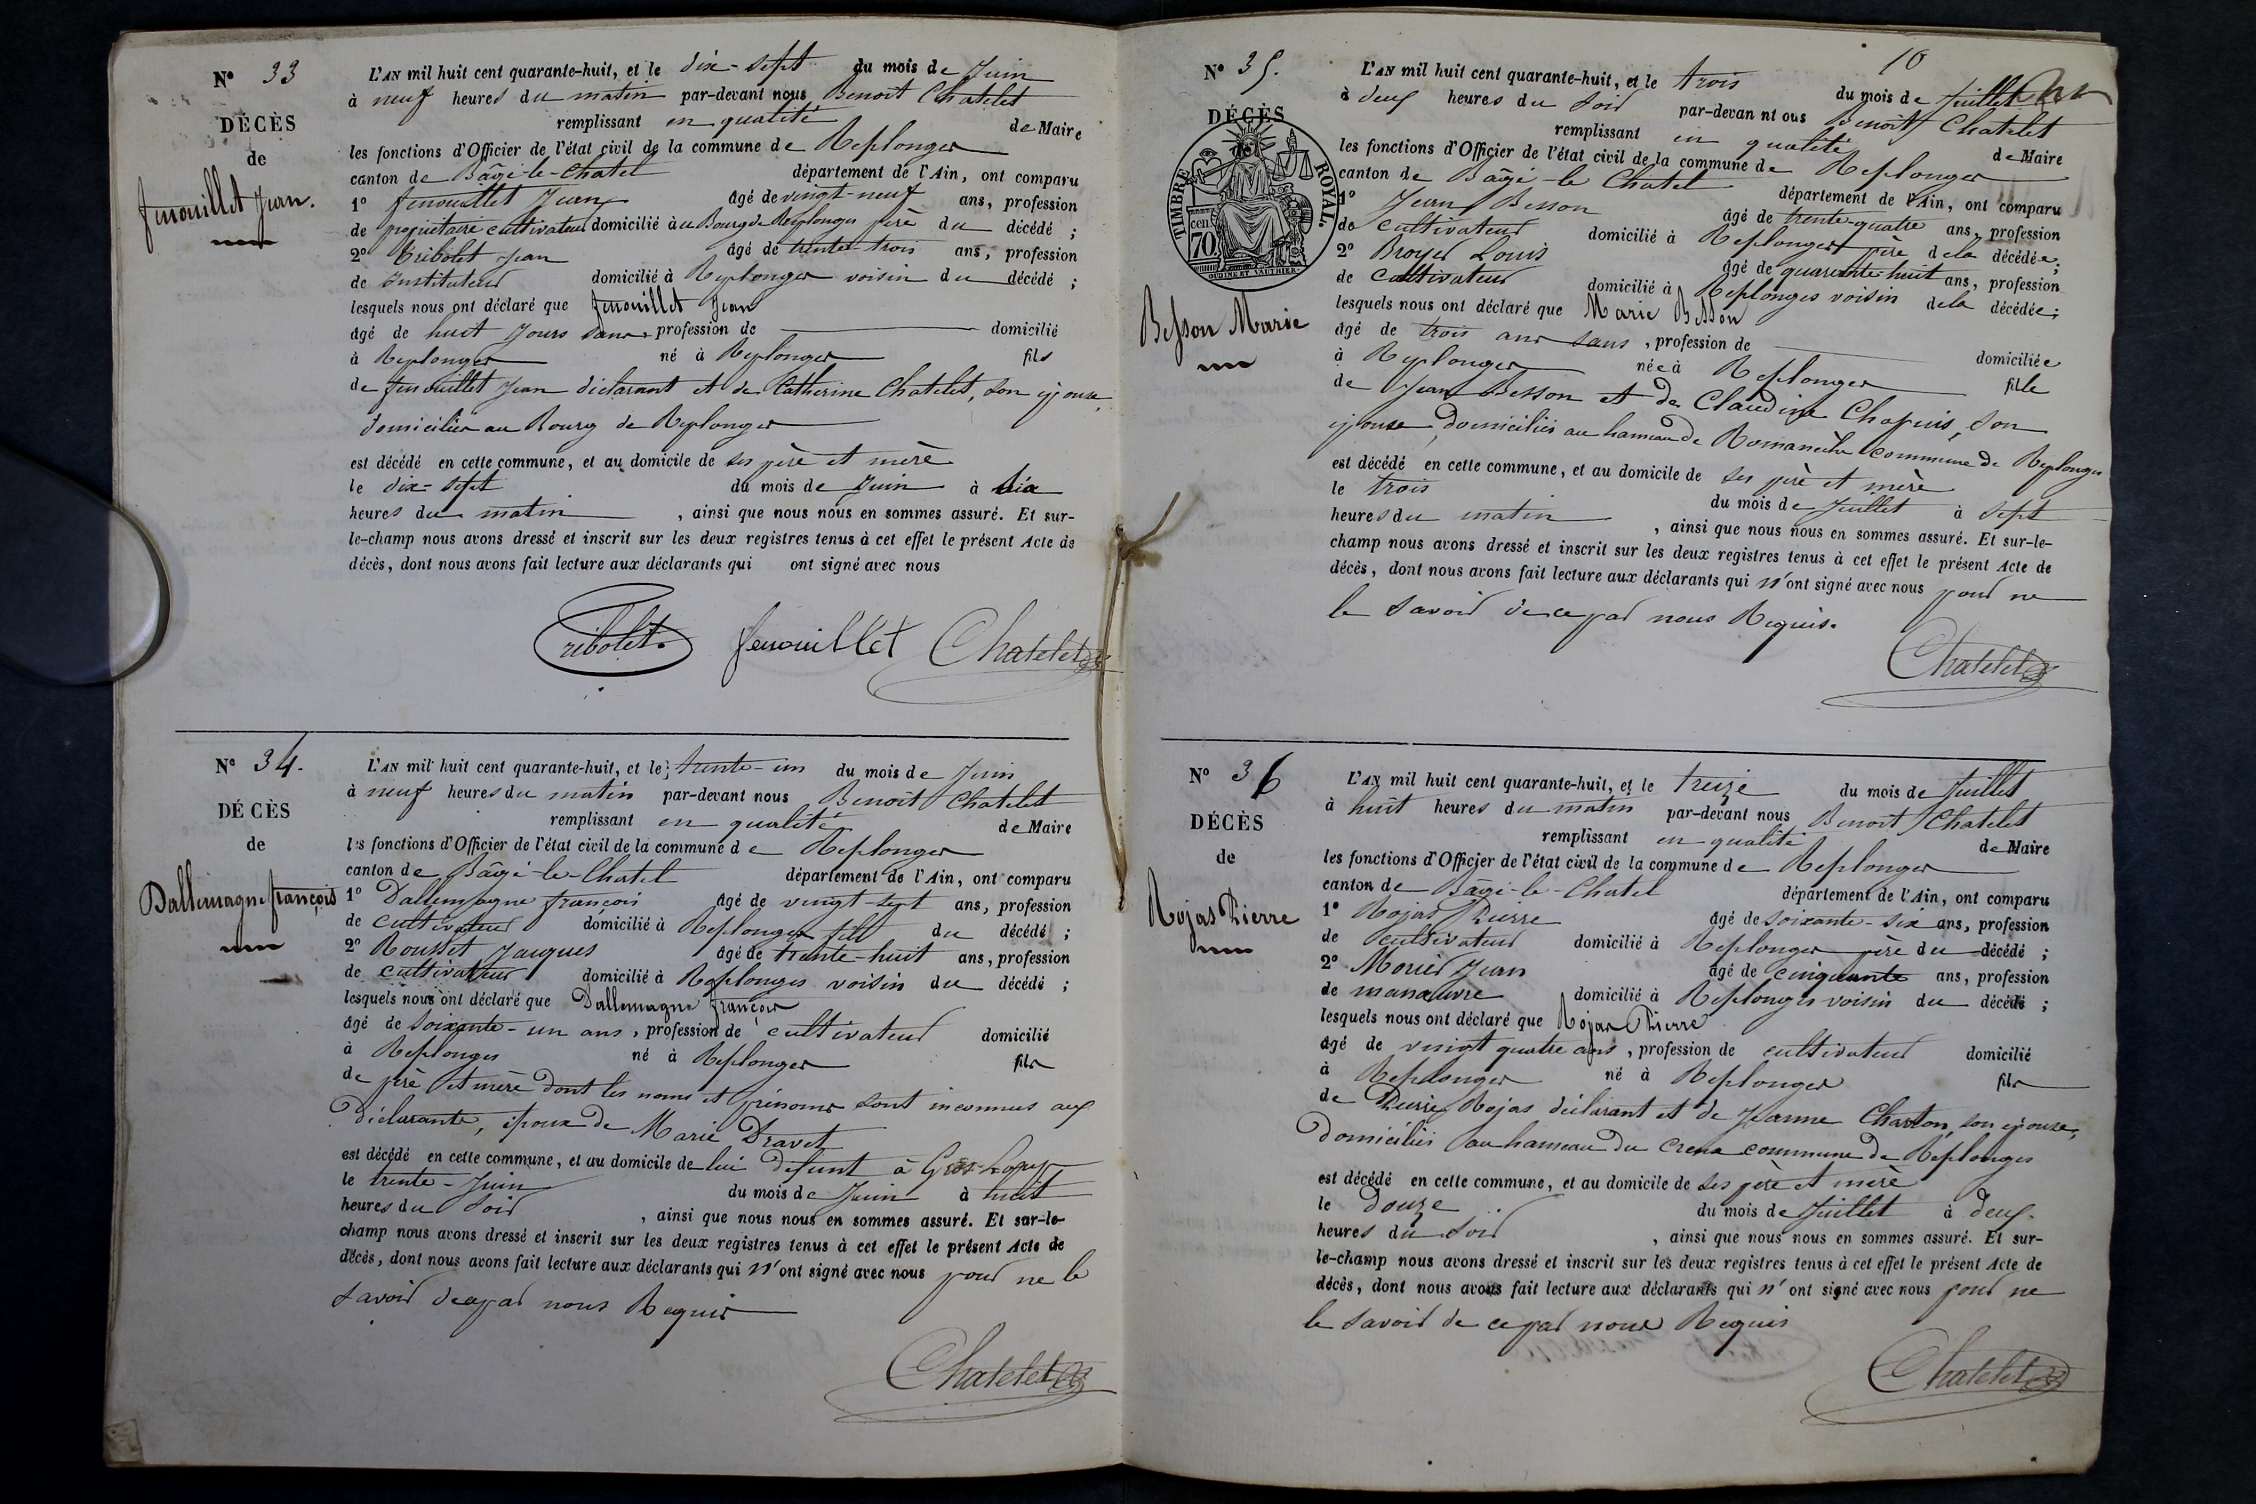 N° 33
DÉCÈS
de
fenouillet Jean.
L'AN mil huit cent quarante-huit, et le dix-sept du mois de Juin
à neuf heures du matin par-devant nous Benoit Chatelet
remplissant en qualité de Maire
les fonctions d'Officier de l'état civil de la commune de Replonges
canton de Bâgé-le-Chatel département de l'Ain, ont comparu
1° fenouillet Jean âgé de vingt-neuf ans, profession
de propriétaire cultivateur domicilié à au Bourg de Replonges père du décédé ;
2° Tribolet Jean âgé de trente-trois ans, profession
de Instituteur domicilié à Replonges voisin du décédé ;
lesquels nous ont déclaré que fenouillet Jean
âgé de huit Jours sans profession de domicilié
à Replonges né à Replonges fils
de fenouillet Jean déclarant et de Catherine Chatelet, son épouse,
domiciliés au Bourg de Replonges
est décédé en cette commune, et au domicile de ses père et mère
le dix-sept du mois de Juin à six
heures du matin , ainsi que nous nous en sommes assuré. Et sur-
le-champ nous avons dressé et inscrit sur les deux registres tenus à cet effet le présent Acte de
décès, dont nous avons fait lecture aux déclarants qui ont signé avec nous
Tribolet. fenouillet Chatelet
N° 34.
DÉCÈS
de
Dallemagne françois
L'AN mil huit cent quarante-huit, et le trente-un du mois de Juin
à neuf heures du matin par-devant nous Benoit Chatelet
remplissant en qualité de Maire
les fonctions d'Officier de l'état civil de la commune de Replonges
canton de Bâgé-le-Chatel département de l'Ain, ont comparu
1° Dallemagne françois âgé de vingt-sept ans, profession
de cultivateur domicilié à Replonges fils du décédé ;
2° Rousset Jacques âgé de trente-huit ans, profession
de cultivateur domicilié à Replonges voisin du décédé ;
lesquels nous ont déclaré que Dallemagne françois
âgé de soixante-un ans, profession de cultivateur domicilié
à Replonges né à Replonges fils
de père et mère dont les noms et prénoms sont inconnus aux
déclarants, époux de Marie Dravet
est décédé en cette commune, et au domicile de lui défunt à
le trente-Juin du mois de Juin à huit
heures du soir , ainsi que nous nous en sommes assuré. Et sur-le-
champ nous avons dressé et inscrit sur les deux registres tenus à cet effet le présent Acte de
décès, dont nous avons fait lecture aux déclarants qui n'ont signé avec nous pour ne le
savoir de ce par nous Requis
Chatelet
10
N° 35.
DÉCÈS
de
TIMBRE ROYAL.
cen. 70
OUDINÉ ET VAUTHIER
Besson Marie
L'AN mil huit cent quarante-huit, et le trois du mois de Juillet
à deux heures du soir par-devan nt ous Benoit Chatelet
remplissant en qualité de Maire
les fonctions d'Officier de l'état civil de la commune de Replonges
canton de Bâgé-le-Chatel département de l'Ain, ont comparu
1° Jean Besson âgé de trente-quatre ans, profession
de cultivateur domicilié à Replonges père de la décédée ;
2° Broyer Louis âgé de quarante-huit ans, profession
de cultivateur domicilié à Replonges voisin de la décédée ;
lesquels nous ont déclaré que Marie Besson
âgé de trois ans sans , profession de domiciliée
à Replonges née à Replonges fille
de Jean Besson et de Claudine Chapuis, son
épouse, domiciliés au hameau de Romanèche commune de Replonges
est décédé en cette commune, et au domicile de ses père et mère
le trois du mois de Juillet à sept
heures du matin , ainsi que nous nous en sommes assuré. Et sur-le-
champ nous avons dressé et inscrit sur les deux registres tenus à cet effet le présent Acte de
décès, dont nous avons fait lecture aux déclarants qui n'ont signé avec nous pour ne
le savoir de ce par nous Requis.
Chatelet
N° 36
DÉCÈS
de
Rojas Pierre
L'AN mil huit cent quarante-huit, et le treize du mois de Juillet
à huit heures du matin par-devant nous Benoit Chatelet
remplissant en qualité de Maire
les fonctions d'Officier de l'état civil de la commune de Replonges
canton de Bâgé-le-Chatel département de l'Ain, ont comparu
1° Rojas Pierre âgé de soixante-six ans, profession
de cultivateur domicilié à Replonges père du décédé ;
2° Morier Jean âgé de cinquante ans, profession
de manœuvre domicilié à Replonges voisin du décédé ;
lesquels nous ont déclaré que Rojas Pierre
âgé de vingt quatre ans , profession de cultivateur domicilié
à Replonges né à Replonges fils
de Pierre Rojas déclarant et de Jeanne Charton, son épouse,
domiciliés au hameau du Crena commune de Replonges
est décédé en cette commune, et au domicile de ses père et mère
le douze du mois de Juillet à deux
heures du soir , ainsi que nous nous en sommes assuré. Et sur-
le-champ nous avons dressé et inscrit sur les deux registres tenus à cet effet le présent Acte de
décès, dont nous avons fait lecture aux déclarants qui n'ont signé avec nous pour ne
le savoir de ce par nous Requis
Chatelet